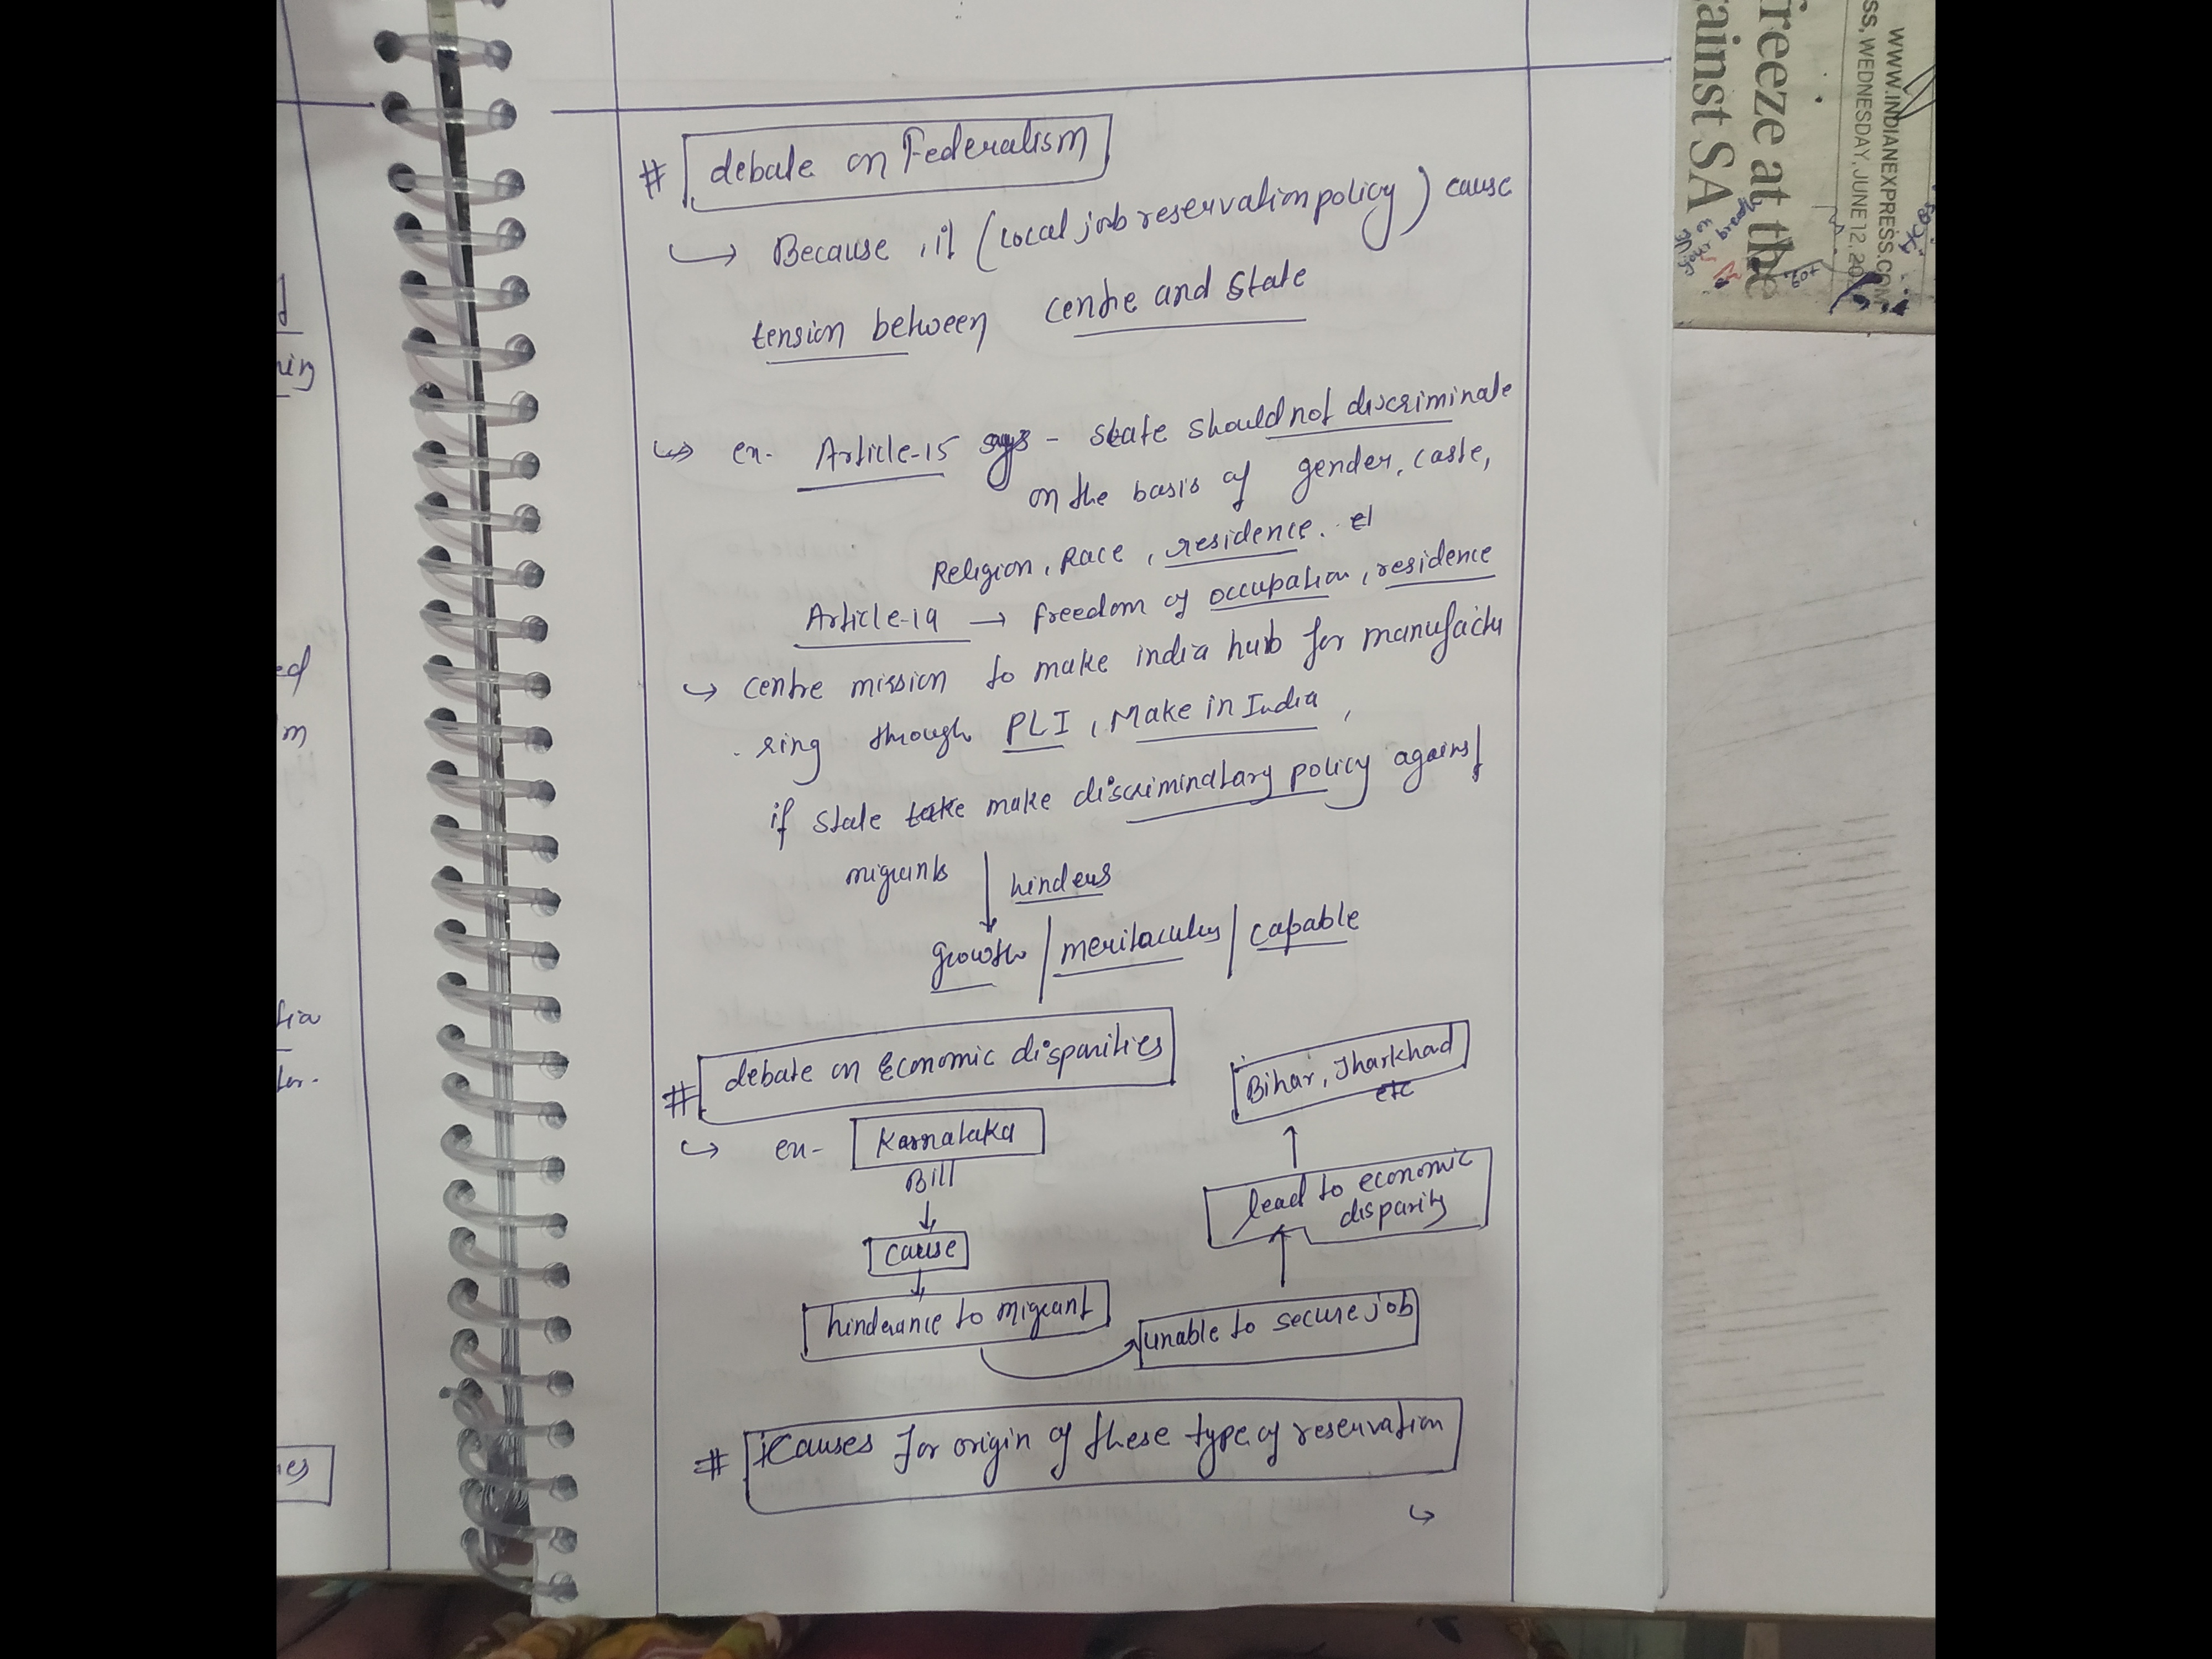 # debate on Federalism
↳ Because, it (Local job reservation policy) cause
tension between centre and state
↳ ex- Article-15 says - state should not discriminate
on the basis of gender, caste,
Religion, Race, residence. et
Article-19 → freedom of occupation, residence
↳ centre mission to make india hub for manufactu
-ring through PLI, Make in India,
if state take make discriminatary policy against
migrants ↓ hinders
growth / meritocutes / capable
# debate on Economic disparities
Bihar, Jharkhad
etc
↳ ex- Karnataka
Bill
↓
cause
↓
hinderance to migrant
unable to secure job
↑
lead to economic
disparity
↑
# Causes for origin of these type of reservation
↳
freeze at the
ainst SA
WWW.INDIANEXPRESS.COM
SS, WEDNESDAY, JUNE 12, 202